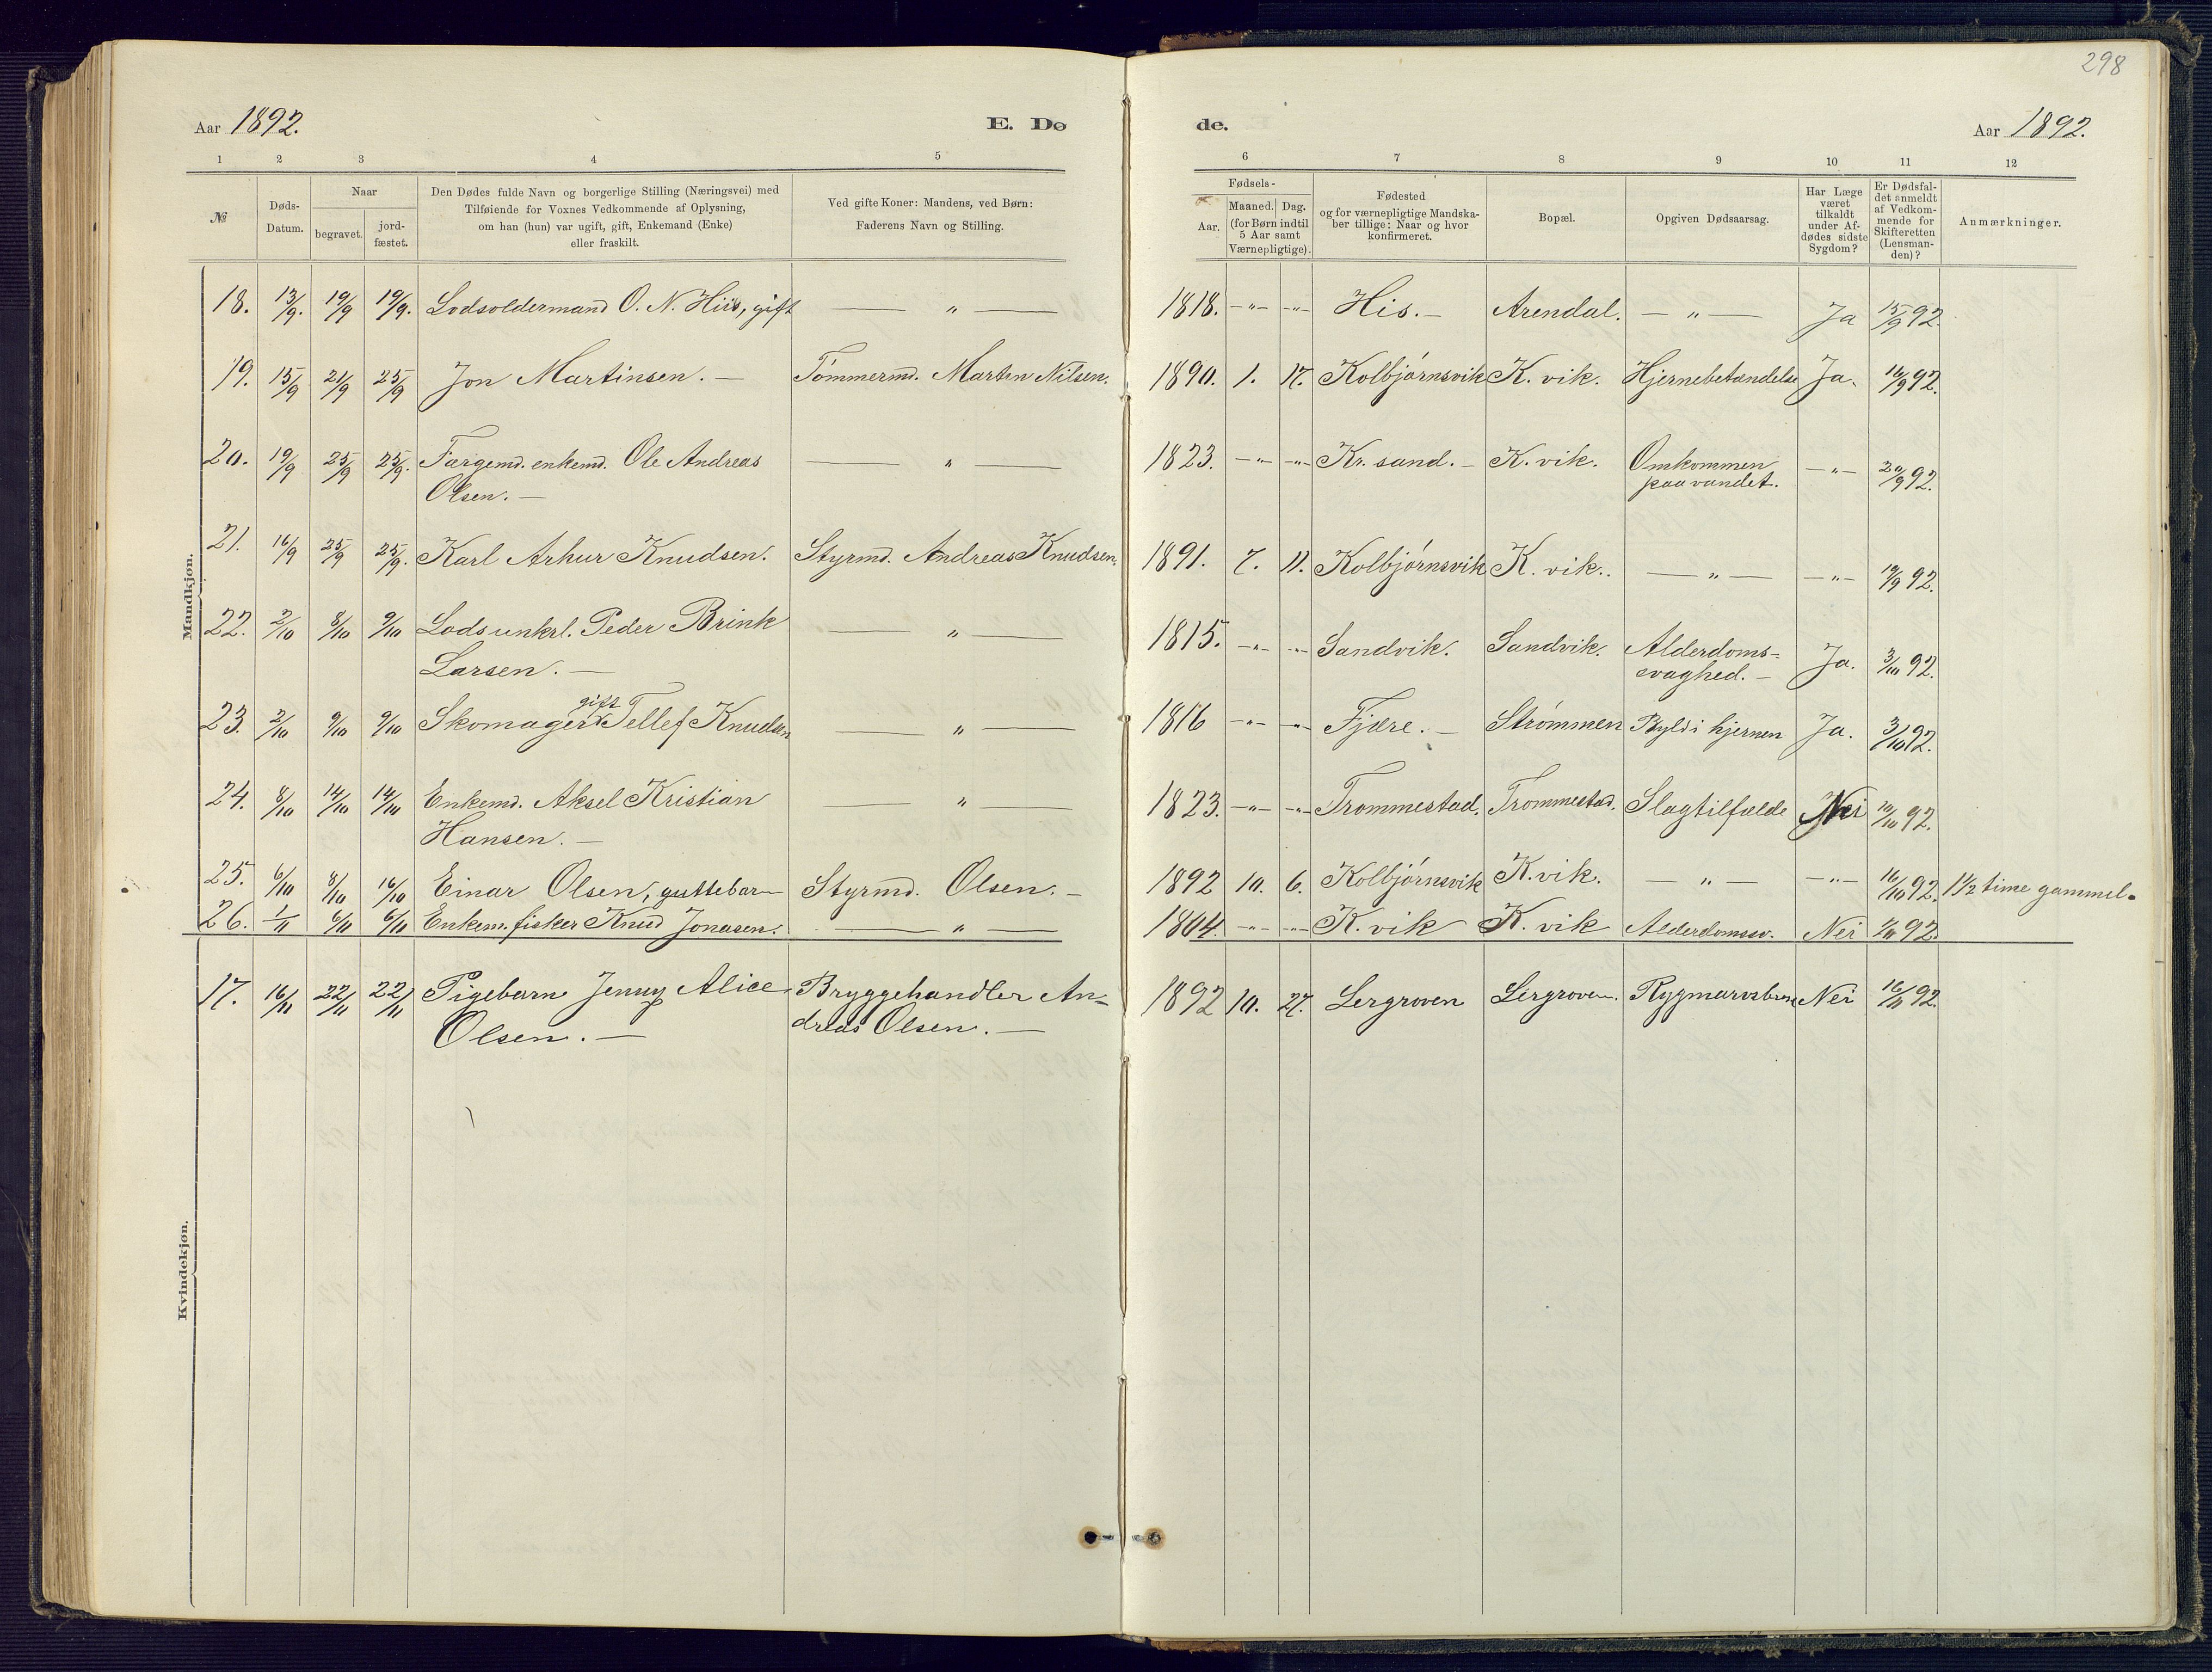 298
Aar 1892. E. Dø de. Aar 1892.
1 2 3 4 5 6 7 8 9 10 11 12
№ Døds-Datum. Naar begravet. jord-fæstet.
Den Dødes fulde Navn og borgerlige Stilling (Næringsvei) med
Tilføiende for Voxnes Vedkommende af Oplysning,
om han (hun) var ugift, gift, Enkemand (Enke)
eller fraskilt.
Ved gifte Koner: Mandens, ved Børn:
Faderens Navn og Stilling.
Fødsels-
Aar. Maaned. Dag.
(for Børn indtil
5 Aar samt
Værnepligtige).
Fødested
og for værnepligtige Mandska-
ber tillige: Naar og hvor
konfirmeret.
Bopæl.
Opgiven Dødsaarsag.
Har Læge
været
tilkaldt
under Af-
dødes sidste
Sygdom?
Er Dødsfal-
det anmeldt
af Vedkom-
mende for
Skifteretten
(Lensman-
den)?
Anmærkninger.
Mandkjøn.
18. 13/9. 19/9 19/9. Lodsoldermand O. N. Hiis, gift — " — 1818. -"- -"- His. - Arendal. — " — Ja 15/9 92.
19. 15/9 21/9 25/9 Jon Martinsen. - Tømmermd. Marten Nilsen. 1890. 1. 17. Kolbjørnsvik K. vik. Hjernebetændelse Ja. 16/9 92.
20. 19/9 25/9 25/9. Fargemd. enkemd. Ole Andreas — " — 1823. -"- -"- Kr. sand. - K. vik. Omkommen -"- 20/9 92.
Olsen. - paa vandet.
21. 16/9 25/9 25/9. Karl Arhur Knudsen. Styrmd. Andreas Knudsen. 1891. 7. 11. Kolbjørnsvik K. vik. — " — -"- 19/9 92.
22. 2/10 8/10 9/10 Lods unkrl. Peder Brink — " — 1815. -"- -"- Sandvik. Sandvik. Alderdoms= Ja. 3/10 92.
Larsen. - svaghed. -
gift
23. 2/10 9/10 9/10 Skomager Tellef Knudsen — " — 1816 -"- -"- Fjære. - Strømmen Byld i hjernen Ja. 3/10 92.
24. 8/10 14/10 14/10 Enkemd. Aksel Kristian — " — 1823. -"- -"- Trommestad. Trommestad. Slagtilfælde Nei 10/10 92.
Hansen. -
25. 6/10 8/10 16/10 Einar Olsen, guttebarn Styrmd. Olsen. - 1892 10. 6. Kolbjørnsvik K. vik. — " — -"- 16/10 92. 1½ time gammel.
26. 1/11 6/11 6/11 Enkem. fisker Knud Jonasen. — " — 1804. -"- -"- K. vik K. vik Alderdomssv. Nei 92.
Kvindekjøn.
17. 16/11 22/11 22/11 Pigebarn Jenny Alice Bryggehandler An- 1892 10. 27. Lergroven Lergroven. Rygmarvsbrm Nei 16/11 92.
Olsen. - dreas Olsen. -